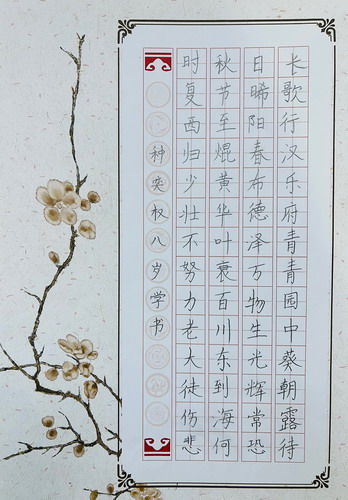 长歌行汉乐府青青园中葵朝露待
日晞阳春布德泽万物生光辉常恐
秋节至焜黄华叶衰百川东到海何
时复西归少壮不努力老大徒伤悲
种奕权八岁学书